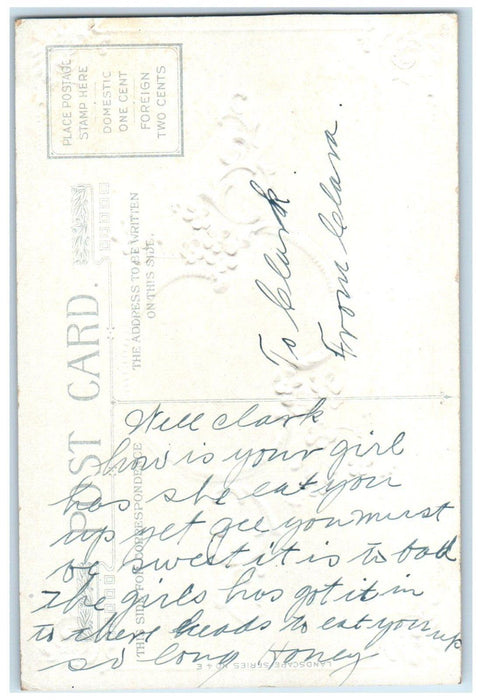 PLACE POSTAGE
STAMP HERE
DOMESTIC
ONE CENT
FOREIGN
TWO CENTS
POST CARD.
THE ADDRESS TO BE WRITTEN
ON THIS SIDE.
To Clark.
From Clara.
THIS SIDE FOR CORRESPONDENCE
Well clark
how is your girl
has she eat you
up yet gee you must
be sweet it is to bad
the girls has got it in
to there heads to eat you up
so long Honey
LANDSCAPE SERIES NO 4 E